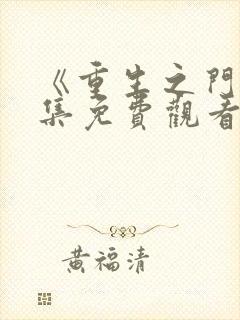 《重生之門
集免費觀看
黃福清